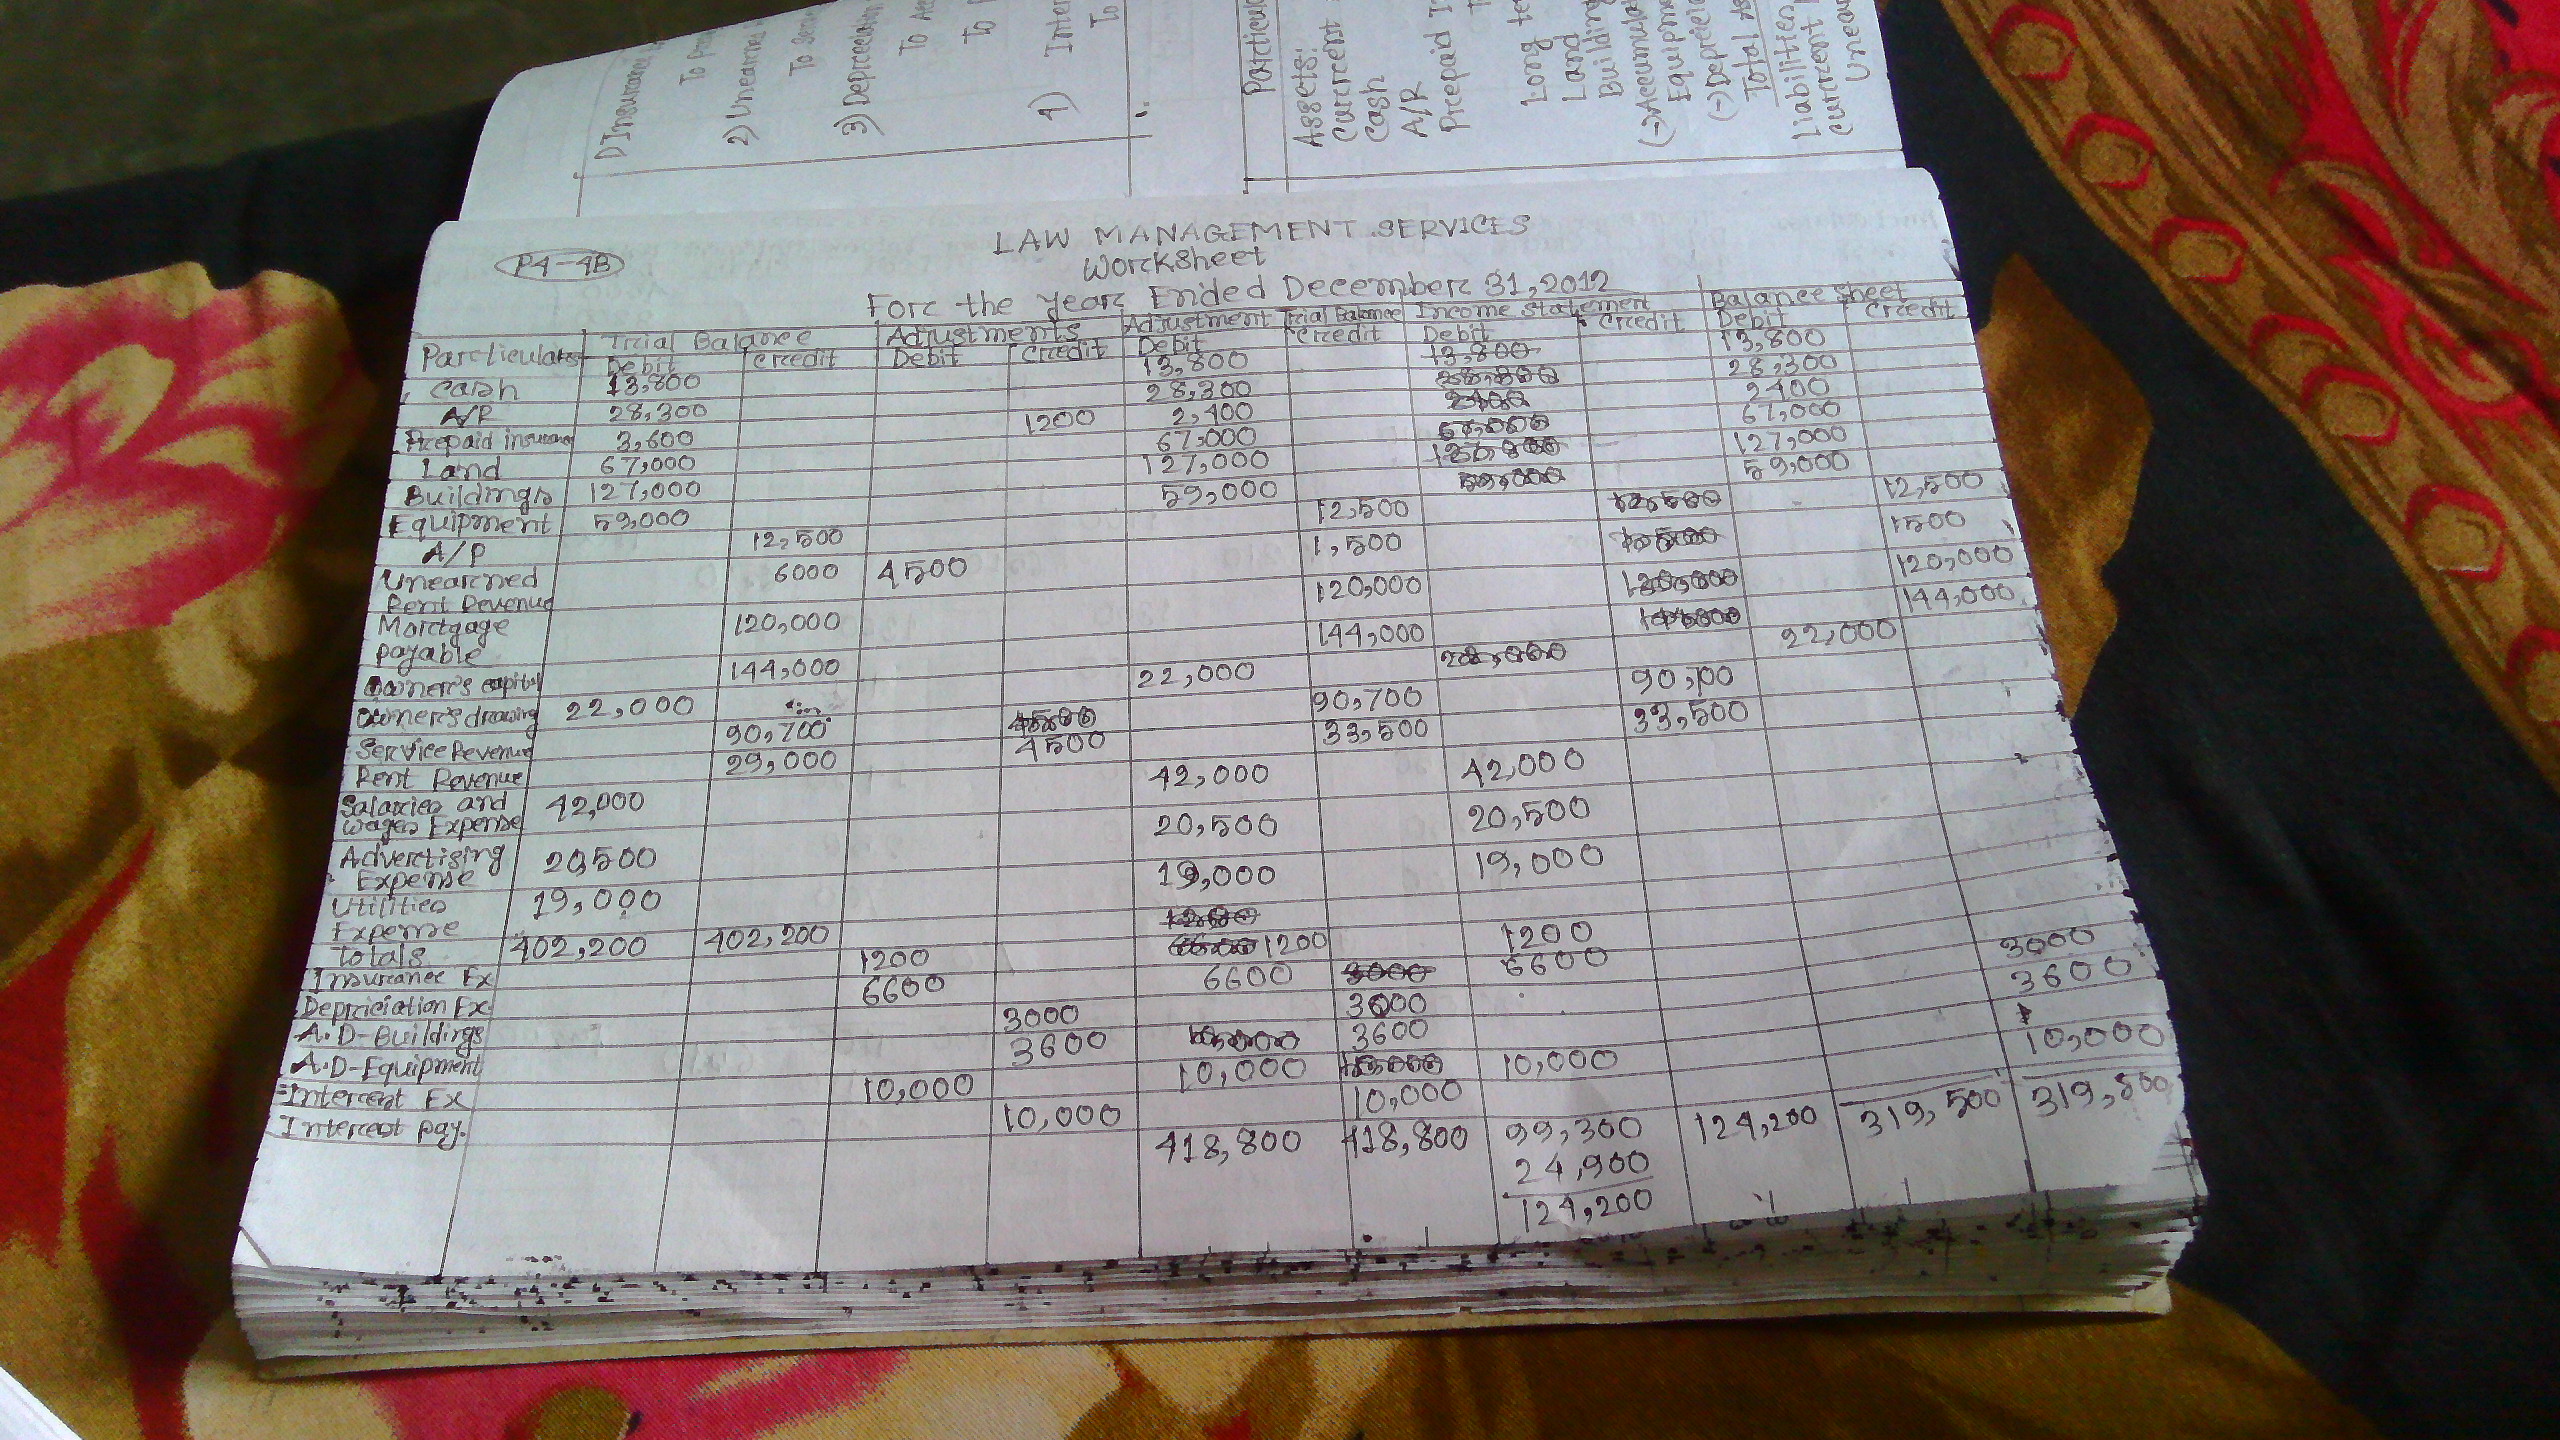 1) Insurance
To prep
2) Unearned
To Ser
3) Depreciation
To Acc
To
4) Inter
To
Particul
Assets:
Current
Cash
A/R
Prepaid I
Long te
Land
Building
(-) Accumula
Equipme
(-) Deprecie
Total As
Liabilities
Current
Unear
P4-4B
LAW MANAGEMENT SERVICES
Worcksheet
Forc the Yearc Ended Decemberc 31, 2012
Particulars Trcial Balance Adjustments Adjustment Trcial Balance Income Statement Balance Sheet
Debit Crcedit Debit Crcedit Debit Crcedit Debit Crcedit Debit Crcedit
Cash 13,800 13,800 13,800 13,800
A/R 28,300 28,300 28,300
Prcepaid insurance 3,600 1200 2,400 2400
Land 67,000 67,000 67,000
Buildings 127,000 127,000 127,000
Equipment 59,000 59,000 59,000 59,000
A/P 12,500 12,500 12,500 12,500
Unearcned Rent Revenue 6000 4500 1,500 1500
Morctgage payable 120,000 120,000 120,000 120,000
Owner's capital 144,000 144,000 144,000 144,000
Owner's drawing 22,000 22,000 22,000
Service Revenue 90,700 90,700 90,700
Rent Revenue 29,000 4500 33,500 33,500
Salaries and Wages Expense 42,000 42,000 42,000
Adverctising Expense 20,500 20,500 20,500
Utilities Expense 19,000 19,000 19,000
Totals 402,200 402,200
Insurcance Ex 1200 1200 1200
Depreciation Ex 6600 6600 6600
A.D-Buildings 3000 3000 3000
A.D-Equipment 3600 3600 3600
Interest Ex 10,000 10,000 10,000
Interest pay. 10,000 10,000 10,000
418,800 418,800 99,300 124,200 319,500 319,500
24,900
124,200